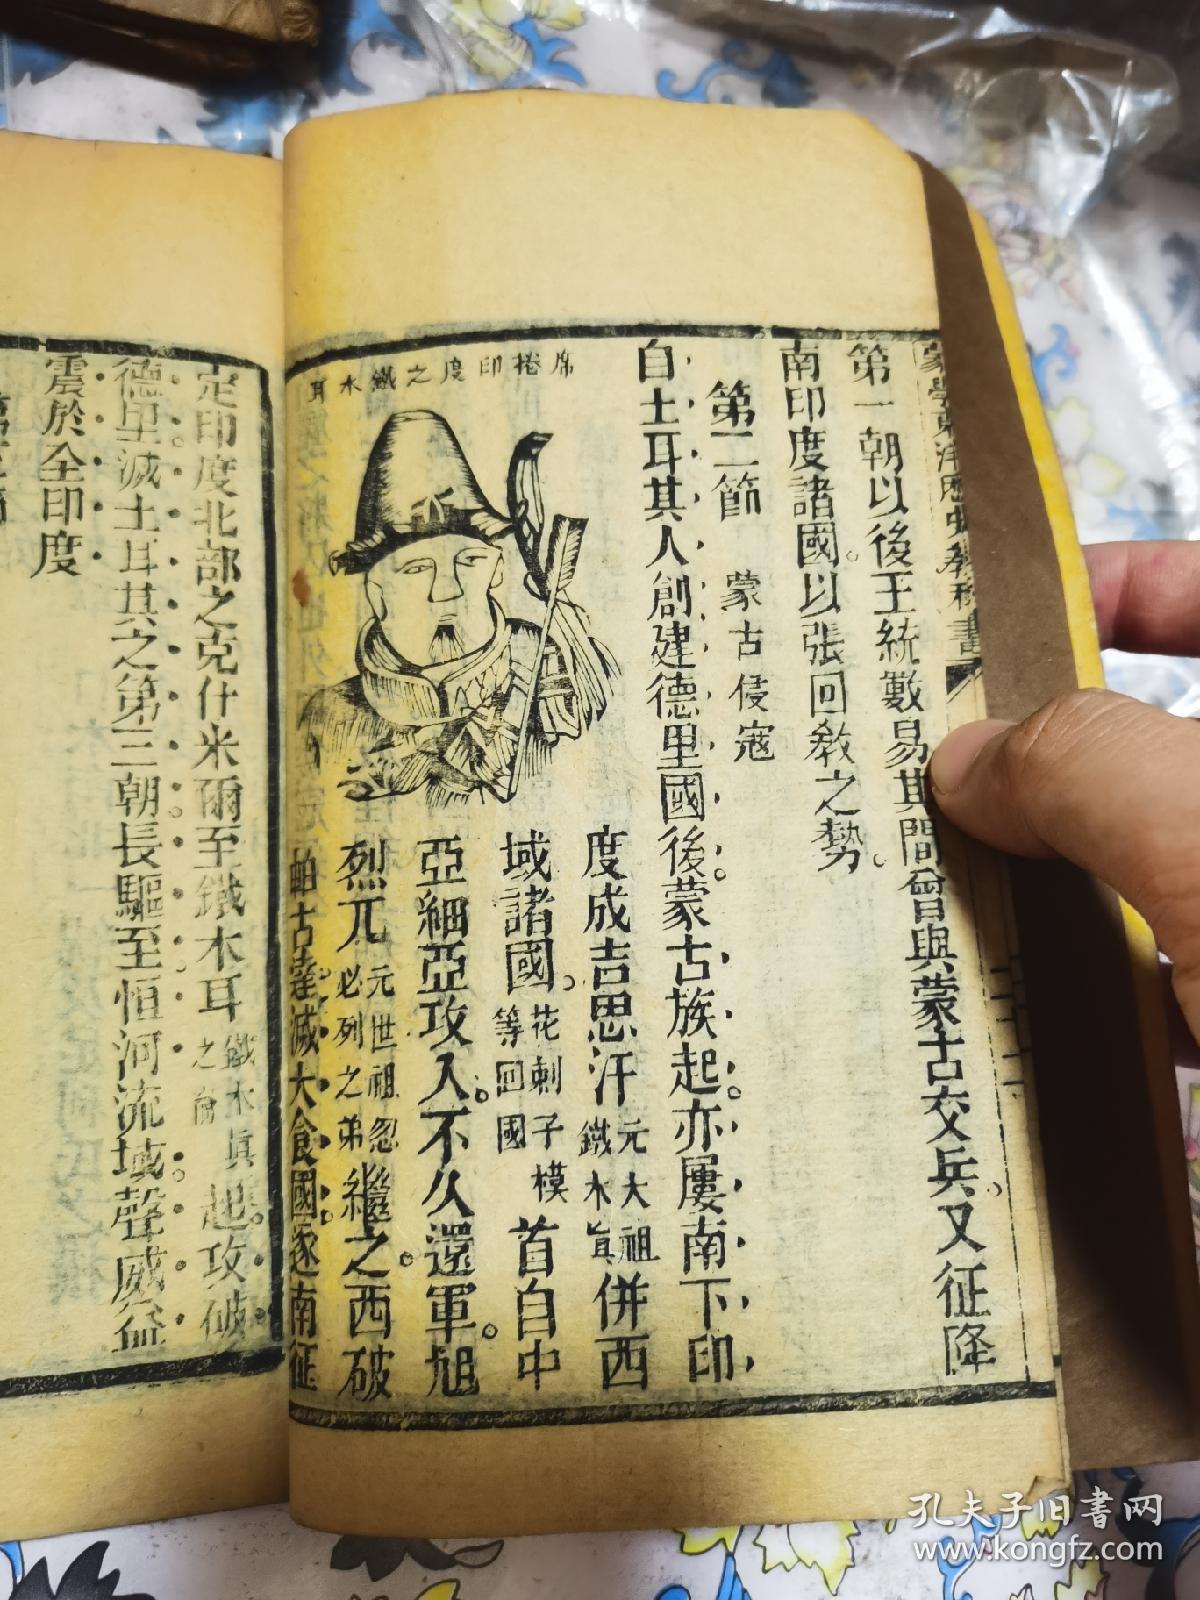 蒙學東洋歷史教科書
第一朝以後王統數易其間曾與蒙古交兵又征降
南印度諸國。以張回教之勢。
第二節 蒙古侵寇
自土耳其人創建德里國後。蒙古族起。亦屢南下印
度成吉思汗元太祖鐵木真併西
域諸國。花剌子模等回國首自中
亞細亞攻入。不久還軍。旭
烈兀元世祖忽必列之弟繼之。西破
帕古達滅大食國遂南征
席捲印度之鐵木耳
定印度北部之克什米爾至鐵木耳鐵木真之裔起。攻破
德里。滅土耳其之第三朝。長驅至恒河流域。聲威益
震於全印度
孔夫子旧书网
www.kongfz.com